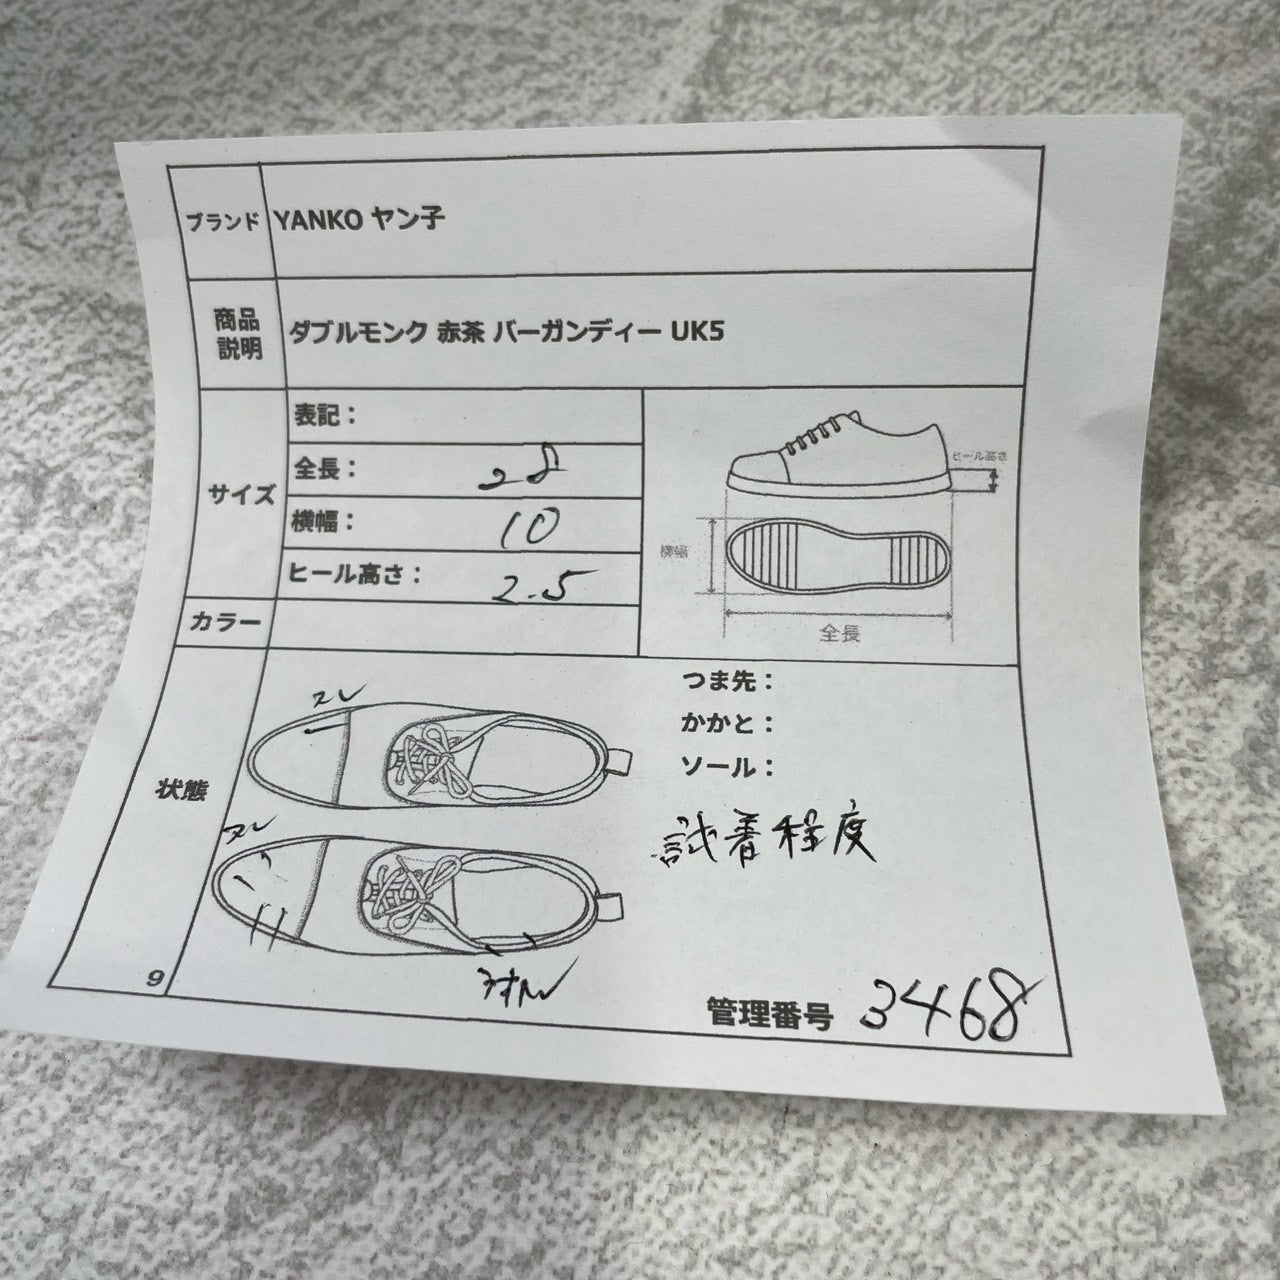 ブランド YANKO ヤン子
商品説明 ダブルモンク 赤茶 バーガンディー UK5
サイズ
表記：
全長： 28
横幅： 10
ヒール高さ： 2.5
ヒール高さ
横幅
全長
カラー
状態
スレ
スレ
つま先：
かかと：
ソール：
試着程度
9
管理番号 3468